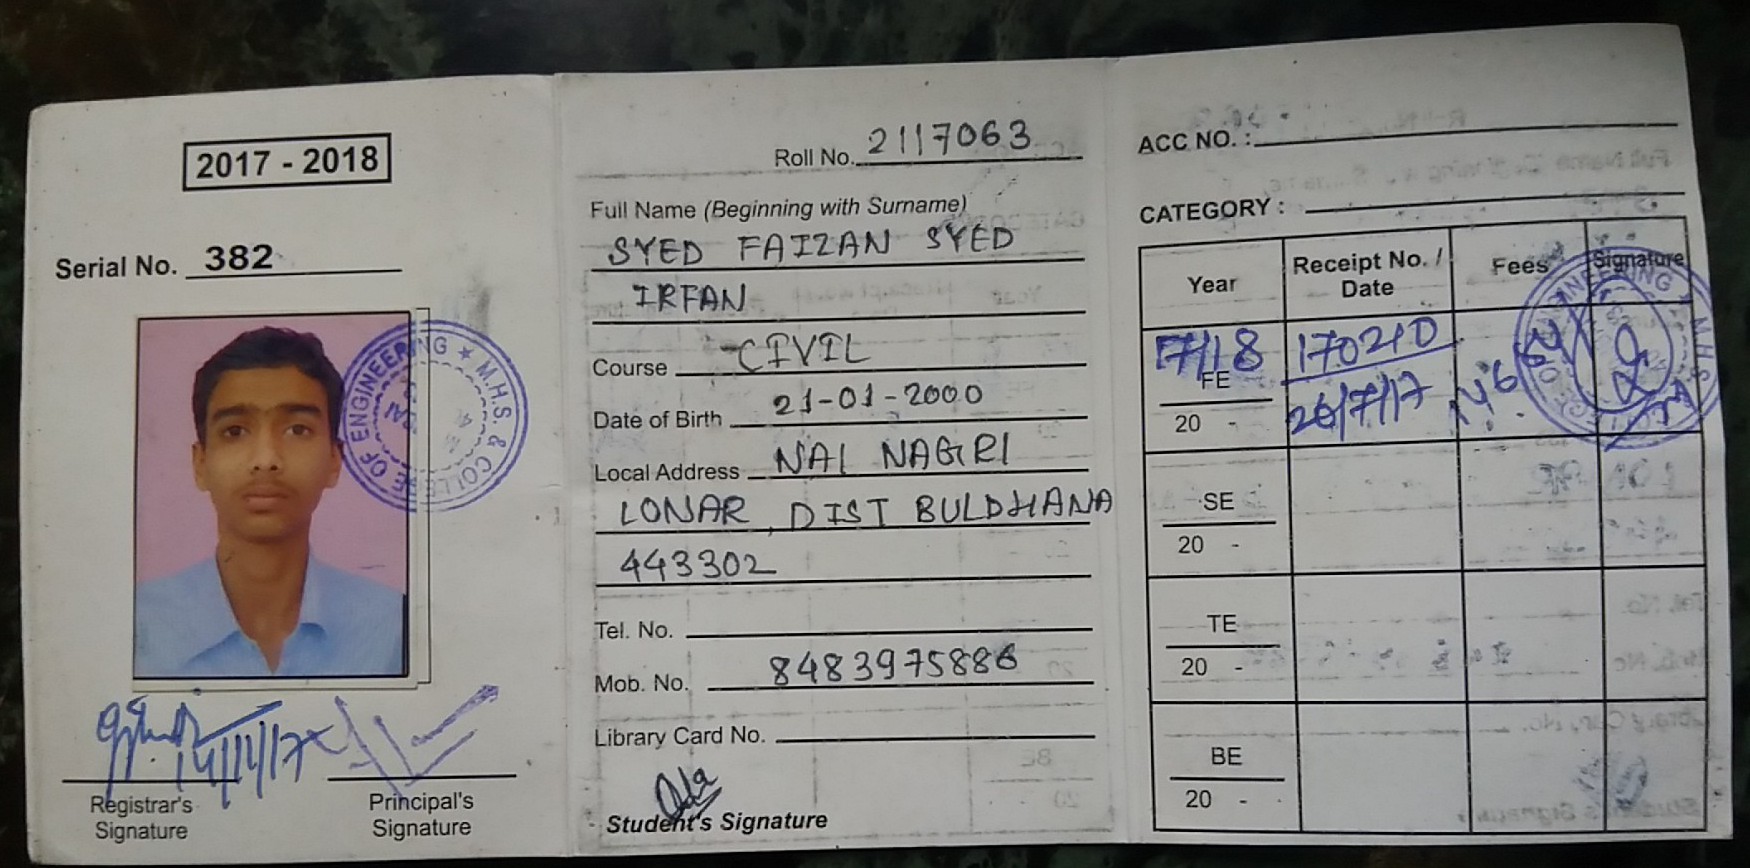 2017 - 2018
Serial No. 382
COLLEGE OF ENGINEERING ★ M.H.S. &
14/11/17
Registrar's
Signature
Principal's
Signature
Roll No. 2117063
Full Name (Beginning with Surname)
SYED FAIZAN SYED
IRFAN
Course CIVIL
Date of Birth 21-01-2000
Local Address NAI NAGRI
LONAR, DIST BULDHANA
443302
Tel. No.
Mob. No. 8483975886
Library Card No.
Student's Signature
ACC NO. :
CATEGORY :
Year Receipt No. / Date Fees Signature
17/18 170210
FE
20 - 26/7/17
SE
20 -
TE
20 -
BE
20 -